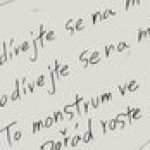 dívejte se na m
odívejte se na m
To monstrum ve
Pořád roste